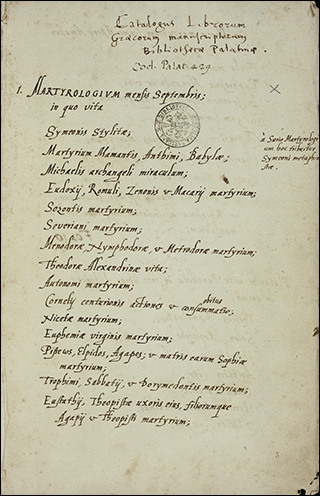 Catalogus Librorum
Graecorum manuscriptorum
Bibliothecae Palatinae.
Cod. Palat. 429
1. MARTYROLOGIVM mensis Septembris;
in quo vita
Symeonis Stylitae;
Martyrium Mamantis, Anthimi, Babylae;
Michaelis archangeli miraculum;
à Surio Martyrologium hoc tribuitur
Symeoni metaphrastae.
Eudoxij, Romuli, Zenonis & Macarij martyrium;
Sozontis martyrium;
Severiani martyrium;
Menodorae, Nymphodorae, & Metrodorae martyrium;
Theodorae Alexandrinae vita;
Autonomi martyrium;
Cornelij centurionis actiones & obitus consummatio;
Nicetae martyrium;
Euphemiae virginis martyrium;
Pisteωs, Elpidos, Agapes; & matris earum Sophiae
martyrium;
Trophimi, Sabbatij, & Dorymedontis martyrium;
Eustathij, Theopistae uxoris eius, filiorumque
Agapij & Theopisti martyrium;